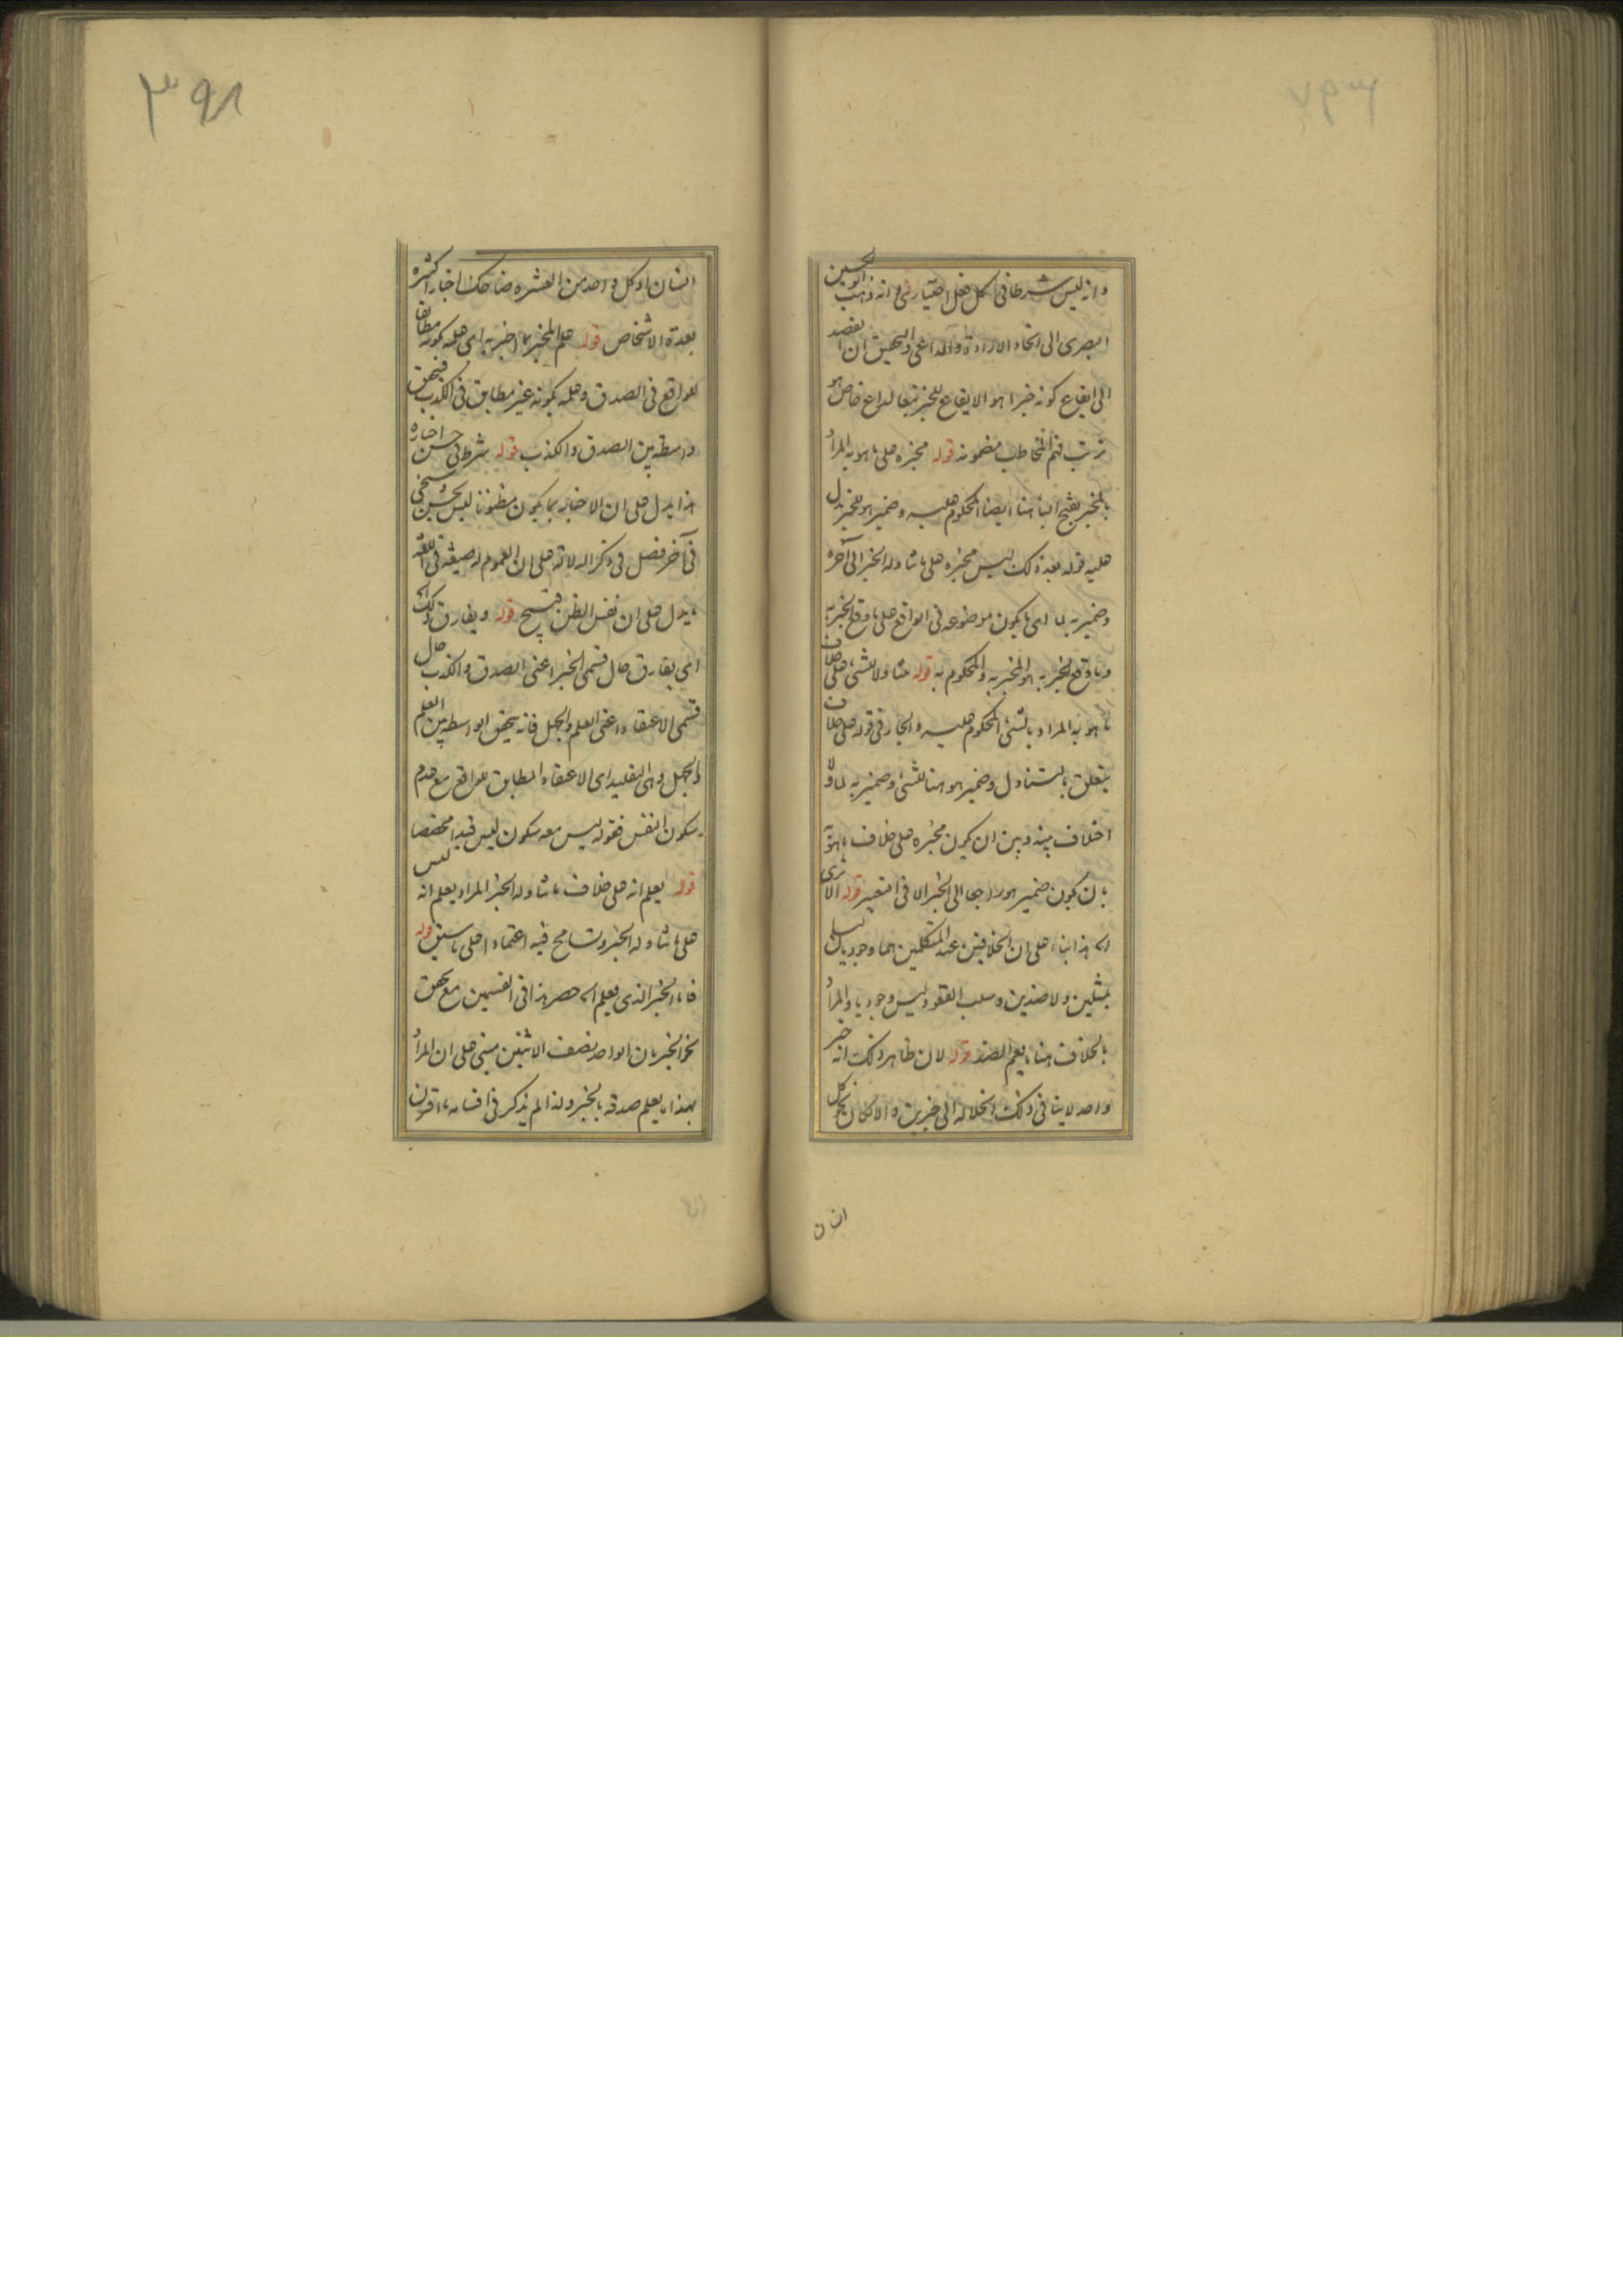 وانه ليس شرطا فى كل فعل اختيارى وانه ذهب ابو الحسين
البصرى الى اتحاد الارادة والداعى والتحقيق ان القصد
الى ايقاع كونه خبرا هو الايقاع للخبر تبعا لداع خاص هو
ترتب فهم المخاطب مضمونه قوله مخبره على ما هو به المراد
بالمخبر بفتح الباء هنا ايضا المحكوم عليه وضمير هو للمخبر يدل
عليه قوله بعد ذلك ليس مخبره على ما تناوله الخبر الى آخره
وضمير به لما اى ما يكون موضوعه فى الواقع على ما وقع الخبر به
وما وقع الخبر به هو المخبر به والمحكوم به قوله متناولا للشىء على خلاف
ما هو به المراد بالشىء المحكوم عليه والجار فى قوله على خلاف
يتعلق بالتناول وضمير هو هنا للشىء وضمير به لما ولا
اختلاف بينه وبين ان يكون مخبره على خلاف ما هو به
بان يكون ضمير هو راجعا الى الخبر الا فى التعبير قوله الا ترى
اله هذا بناء على ان الخلافين عند المتكلمين هما وجوديان ليسا
بمثلين ولا ضدين وسلب القعود ليس وجوديا والمراد
بالخلاف هنا ما يعم الضد قوله لان ظاهر ذلك انه خبر
واحد لا ينافى ذلك انحلاله الى خبرين والا لكان نحو كل
انسان
٣٩٨
انسان او كل واحد من العشره ضاحك اخبارا كثيره
بعدة الاشخاص قوله علم المخبر بما اخبر به اى علمه بكونه مطابقا
للواقع فى الصدق وعلمه بكونه غير مطابق فى الكذب فيتحقق
واسطة بين الصدق والكذب قوله شرط فى حسن اخباره
هذا يدل على ان الاخبار بما يكون مظنونا ليس بحسن وسيجئ
فى آخر فصل فى ذكر الدلالة على ان العموم له صيغة فى اللغه
ما يدل على ان نفس الظن قبيح قوله ويفارق ذلك اله
اى يفارق حال قسمى الخبر اعنى الصدق والكذب حال
قسمى الاعتقاد اعنى العلم والجهل فانه يتحقق الواسطه بين العلم
والجهل وهى التقليد اى الاعتقاد المطابق للواقع مع عدم
سكون النفس فقوله ليس معه سكون ليس قيدا مخصصا
قوله يعلم انه على خلاف ما تناوله الخبر المراد يعلم انه ليس
على ما تناوله الخبر وتسامح فيه اعتمادا على ما سبق قوله
فاما الخبر الذى يعلم اله حصر هذا فى القسمين مع تحقق
نحو الخبر بان الواحد نصف الاثنين مبنى على ان المراد
بهذا ما يعلم صدقه بالخبر ولذا لم يذكر فى اقسامه ما اقترن